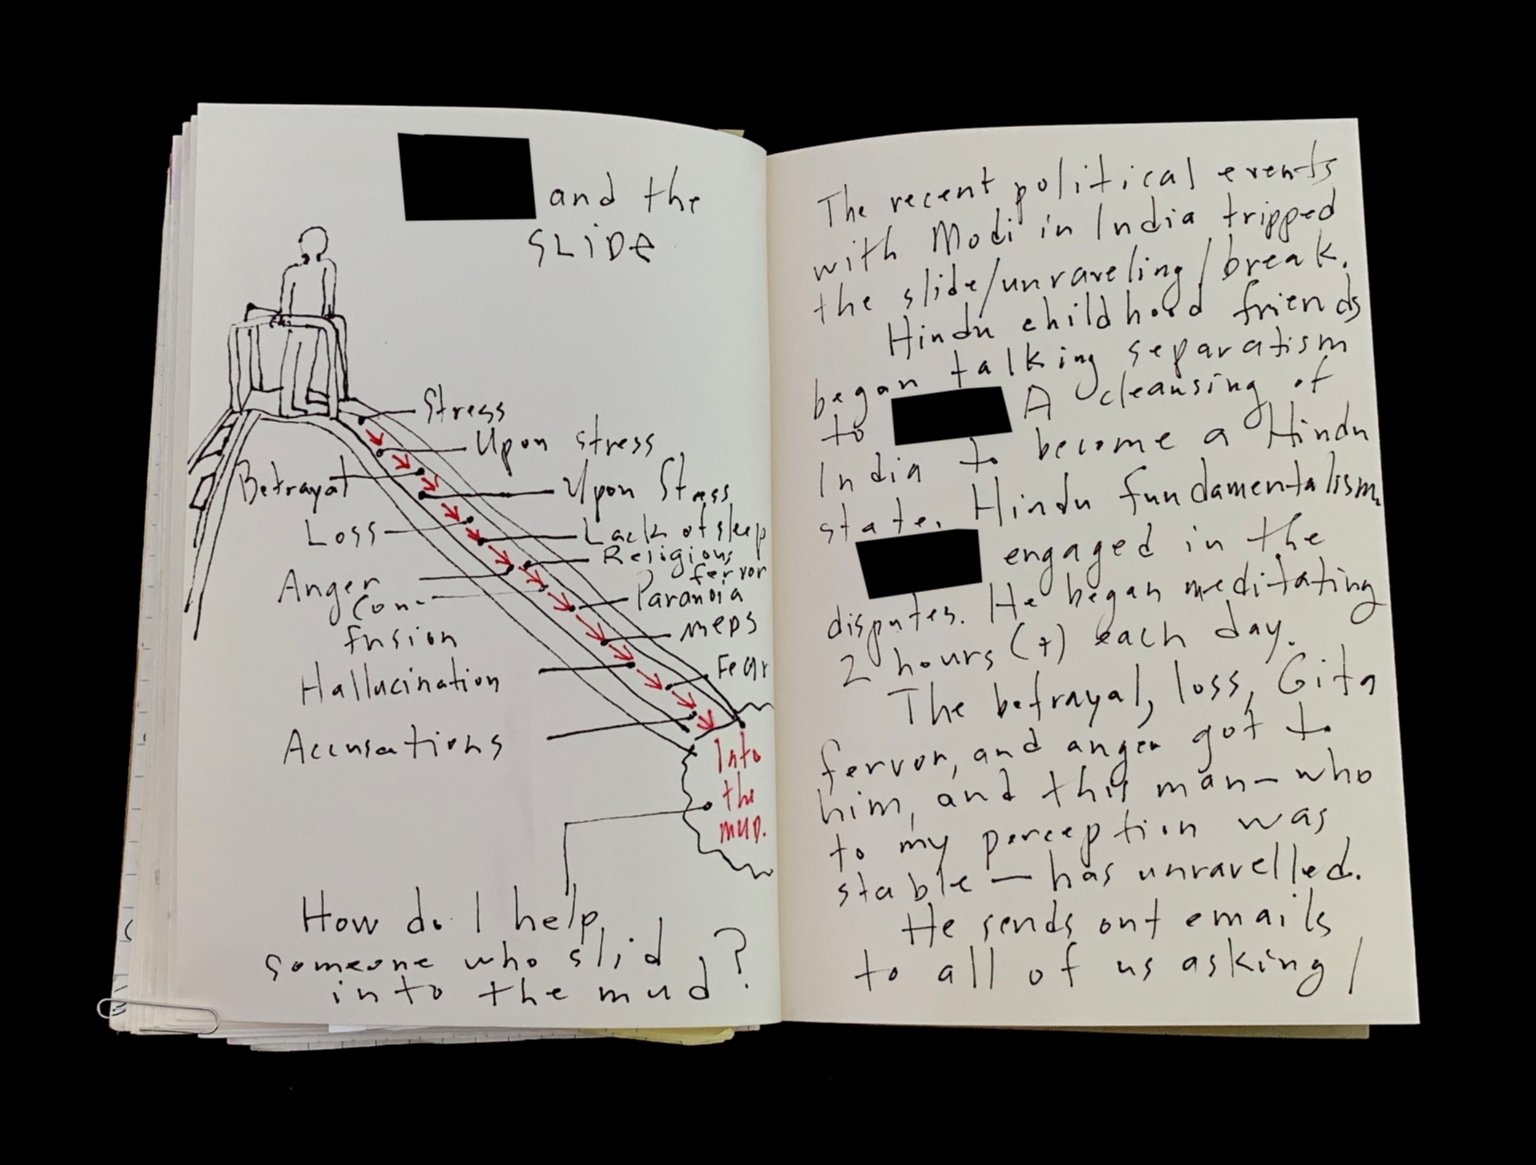 and the
SLIDE
Stress
Upon stress
Betrayal
Upon Stress
Loss
Lack of sleep
Religious
fervor
Anger
Con-
fusion
Paranoia
MEDS
Hallucination
Fear
Accusations
Into
the
mud.
How do I help
someone who slid
into the mud?
The recent political events
with Modi in India tripped
the slide/unraveling/break.
Hindu childhood friends
began talking separatism
to A cleansing of
India to become a Hindu
state. Hindu fundamentalism.
engaged in the
disputes. He began meditating
2 hours (+) each day.
The betrayal, loss, Gita
fervor, and anger got to
him, and this man—who
to my perception was
stable—has unravelled.
He sends out emails
to all of us asking/